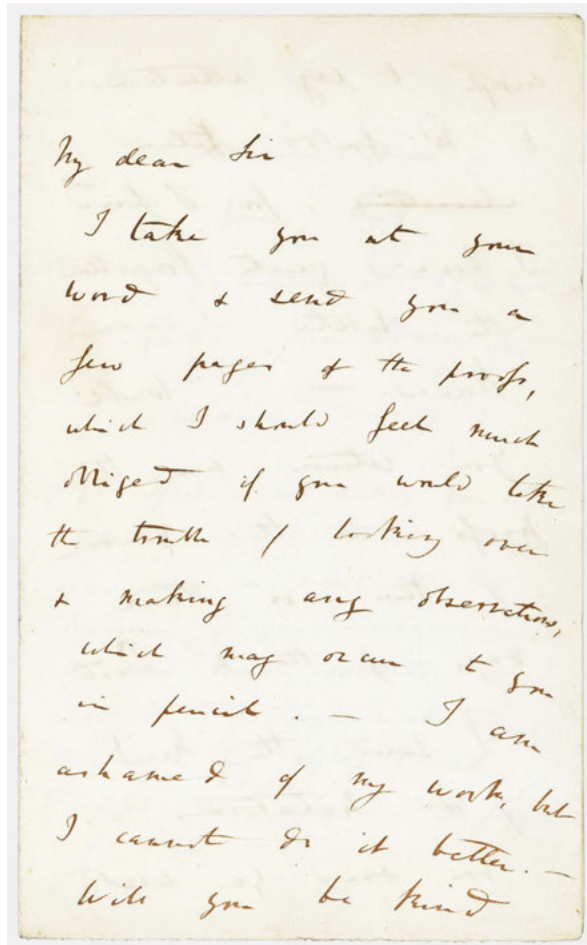 My dear Sir
I take you at your
word & send you a
few pages of the proofs,
which I should feel much
obliged if you would take
the trouble of looking over
& making any observations,
which may occur to you
in pencil. — I am
ashamed of my work, but
I cannot do it better. —
Will you be kind